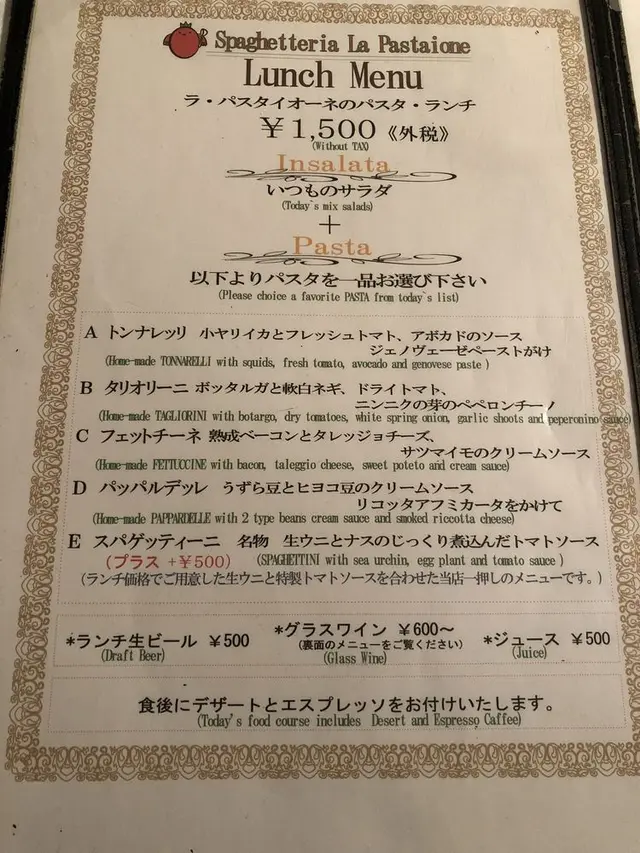 Spaghetteria La Pastaione
Lunch Menu
ラ・パスタイオーネのパスタ・ランチ
¥1,500《外税》
(Without TAX)
Insalata
いつものサラダ
(Today`s mix salads)
+
Pasta
以下よりパスタを一品お選び下さい
(Please choice a favorite PASTA from today`s list)
A トンナレッリ 小ヤリイカとフレッシュトマト、アボカドのソース
ジェノヴェーゼペーストがけ
(Home-made TONNARELLI with squids, fresh tomato, avocado and genovese paste )
B タリオリーニ ボッタルガと軟白ネギ、ドライトマト、
ニンニクの芽のペペロンチーノ
(Home-made TAGLIORINI with botargo, dry tomatoes, white spring onion, garlic shoots and peperonino sauce)
C フェットチーネ 熟成ベーコンとタレッジョチーズ、
サツマイモのクリームソース
(Home-made FETTUCINE with bacon, taleggio cheese, sweet poteto and cream sauce)
D パッパルデッレ うずら豆とヒヨコ豆のクリームソース
リコッタアフミカータをかけて
(Home-made PAPPARDELLE with 2 type beans cream sauce and smoked riccotta cheese)
E スパゲッティーニ 名物 生ウニとナスのじっくり煮込んだトマトソース
(プラス +¥500) (SPAGHETTINI with sea urchin, egg plant and tomato sauce )
(ランチ価格でご用意した生ウニと特製トマトソースを合わせた当店一押しのメニューです。)
*ランチ生ビール ¥500 *グラスワイン ¥600〜 *ジュース ¥500
(裏面のメニューをご覧ください)
(Draft Beer) (Glass Wine) (Juice)
食後にデザートとエスプレッソをお付けいたします。
(Today's food course includes Desert and Espresso Caffee)